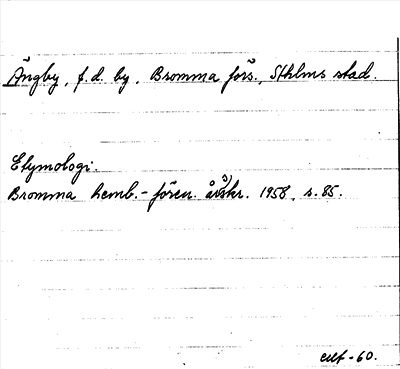 Ängby, f.d. by, Bromma förs., Sthlms stad.
Etymologi:
Bromma hemb.-fören. årsskr. 1958, s. 85.
-60.